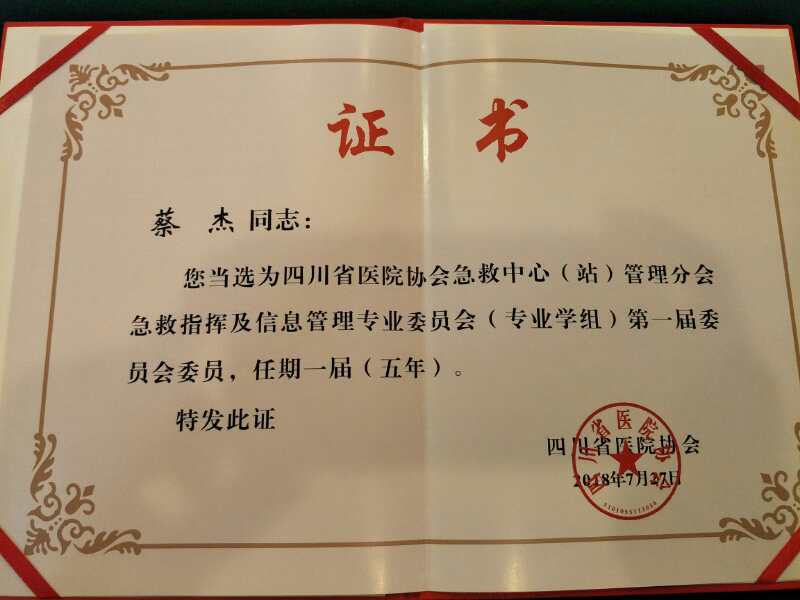 证书
蔡杰同志：
您当选为四川省医院协会急救中心（站）管理分会
急救指挥及信息管理专业委员会（专业学组）第一届委
员会委员，任期一届（五年）。
特发此证
四川省医院协会
2018年7月27日
四川省医院协会